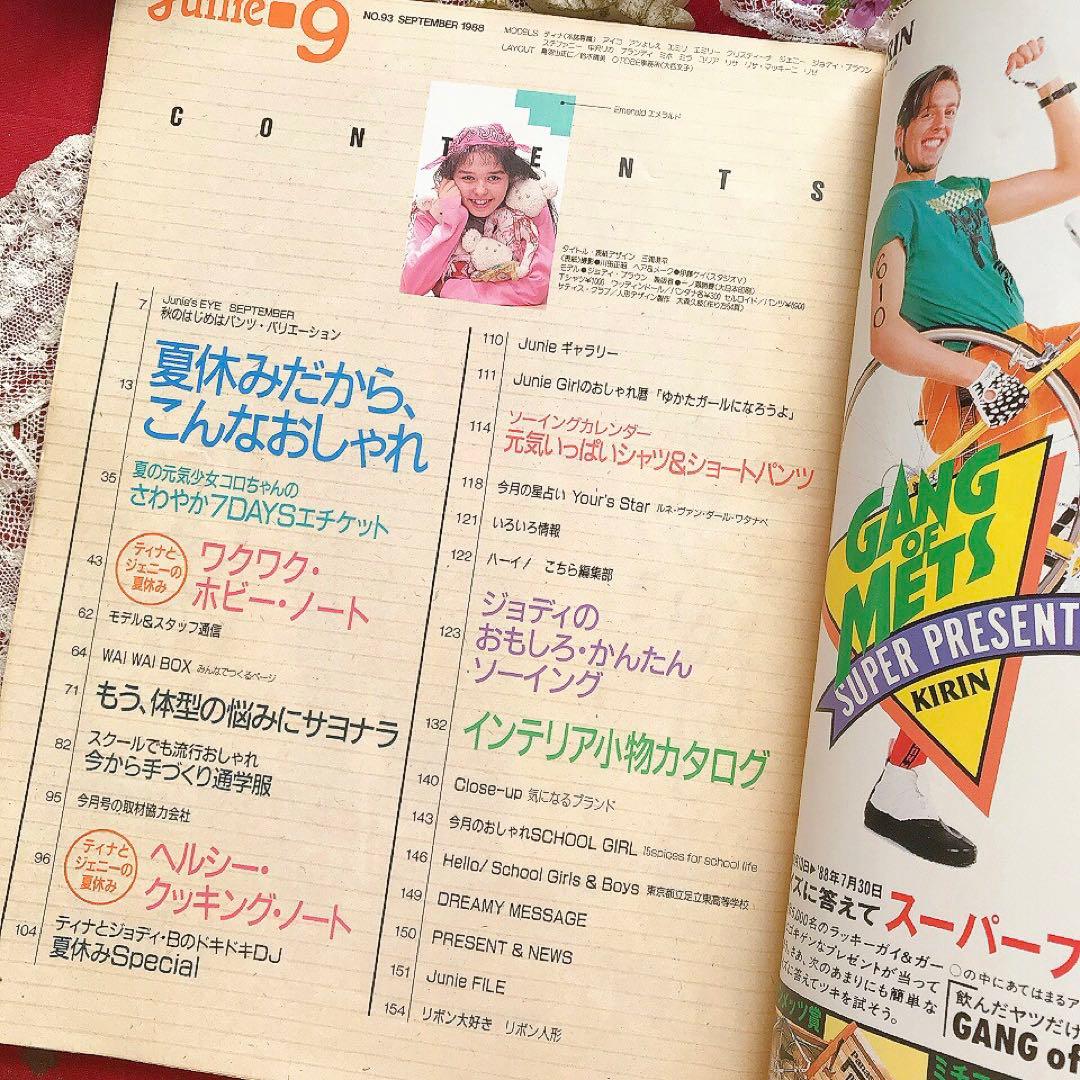 Junie 9
NO.93 SEPTEMBER 1988
MODELS
LAYOUT
CONTENTS
Emerald エメラルド
タイトル・表紙デザイン
7 Junie's EYE SEPTEMBER
秋のはじめはパンツ・バリエーション
13 夏休みだから、
こんなおしゃれ
35 夏の元気少女コロちゃんの
さわやか7DAYSエチケット
43 ティナと
ジェニーの
夏休み
ワクワク・
ホビー・ノート
62 モデル&スタッフ通信
64 WAI WAI BOX みんなでつくるページ
71 もう、体型の悩みにサヨナラ
82 スクールでも流行おしゃれ
今から手づくり通学服
95 今月号の取材協力会社
96 ティナと
ジェニーの
夏休み
ヘルシー・
クッキング・ノート
104 ティナとジョディ・BのドキドキDJ
夏休みSpecial
110 Junie ギャラリー
111 Junie Girlのおしゃれ暦「ゆかたガールになろうよ」
114 ソーイングカレンダー
元気いっぱいシャツ&ショートパンツ
118 今月の星占い Your's Star ルネ・ヴァン・ダール・ワタナベ
121 いろいろ情報
122 ハーイ! こちら編集部
123 ジョディの
おもしろ・かんたん
ソーイング
132 インテリア小物カタログ
140 Close-up 気になるブランド
143 今月のおしゃれSCHOOL GIRL 15spices for school life
146 Hello! School Girls & Boys 東京都立足立東高等学校
149 DREAMY MESSAGE
150 PRESENT & NEWS
151 Junie FILE
154 リボン大好き リボン人形
610
GANG
OF
METS
SUPER PRESENT
KIRIN
'88年7月30日
ズに答えて スーパープ
名のラッキーガイ&ガー
ゴキゲンなプレゼントが当って
さあ、次のあまりにも簡単な
ズに答えてツキを試そう。
○の中にあてはまるア
飲んだヤツだけ
GANG of
メッツ賞